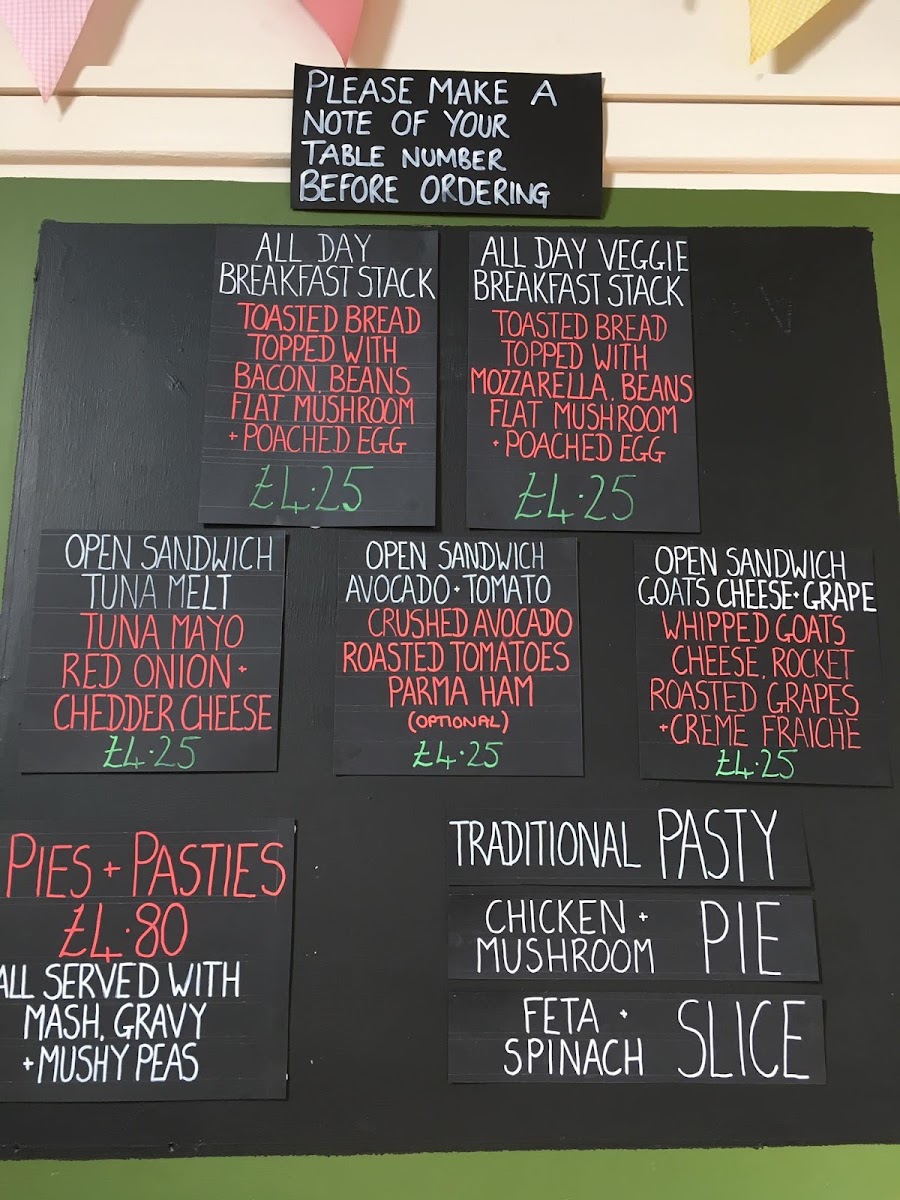 PLEASE MAKE A
NOTE OF YOUR
TABLE NUMBER
BEFORE ORDERING
ALL DAY
BREAKFAST STACK
TOASTED BREAD
TOPPED WITH
BACON, BEANS
FLAT MUSHROOM
+ POACHED EGG
£4.25
ALL DAY VEGGIE
BREAKFAST STACK
TOASTED BREAD
TOPPED WITH
MOZZARELLA, BEANS
FLAT MUSHROOM
+ POACHED EGG
£4.25
OPEN SANDWICH
TUNA MELT
TUNA MAYO
RED ONION +
CHEDDER CHEESE
£4.25
OPEN SANDWICH
AVOCADO + TOMATO
CRUSHED AVOCADO
ROASTED TOMATOES
PARMA HAM
(OPTIONAL)
£4.25
OPEN SANDWICH
GOATS CHEESE + GRAPE
WHIPPED GOATS
CHEESE, ROCKET
ROASTED GRAPES
+ CREME FRAICHE
£4.25
PIES + PASTIES
£4.80
ALL SERVED WITH
MASH, GRAVY
+ MUSHY PEAS
TRADITIONAL PASTY
CHICKEN +
MUSHROOM PIE
FETA +
SPINACH SLICE